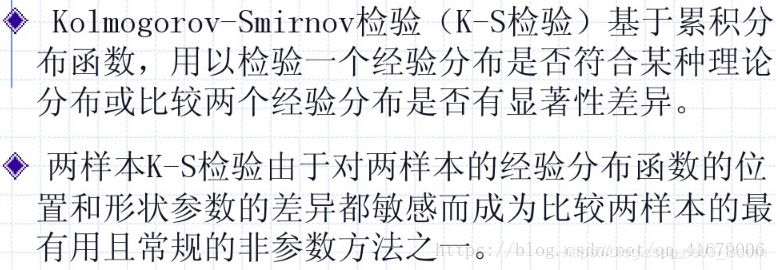 Kolmogorov-Smirnov检验（K-S检验）基于累积分
布函数，用以检验一个经验分布是否符合某种理论
分布或比较两个经验分布是否有显著性差异。
两样本K-S检验由于对两样本的经验分布函数的位
置和形状参数的差异都敏感而成为比较两样本的最
有用且常规的非参数方法之一。
https://blog.csdn.net/qq_41679006